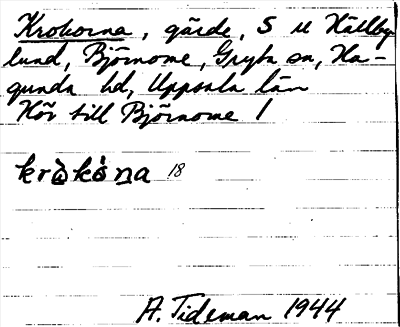 Krokorna, gärde, S u Hällby
lund, Björnome, Gryta sn, Ha-
gunda hd, Uppsala län
Hör till Björnome 1
kròkóna 18
A. Tideman 1944